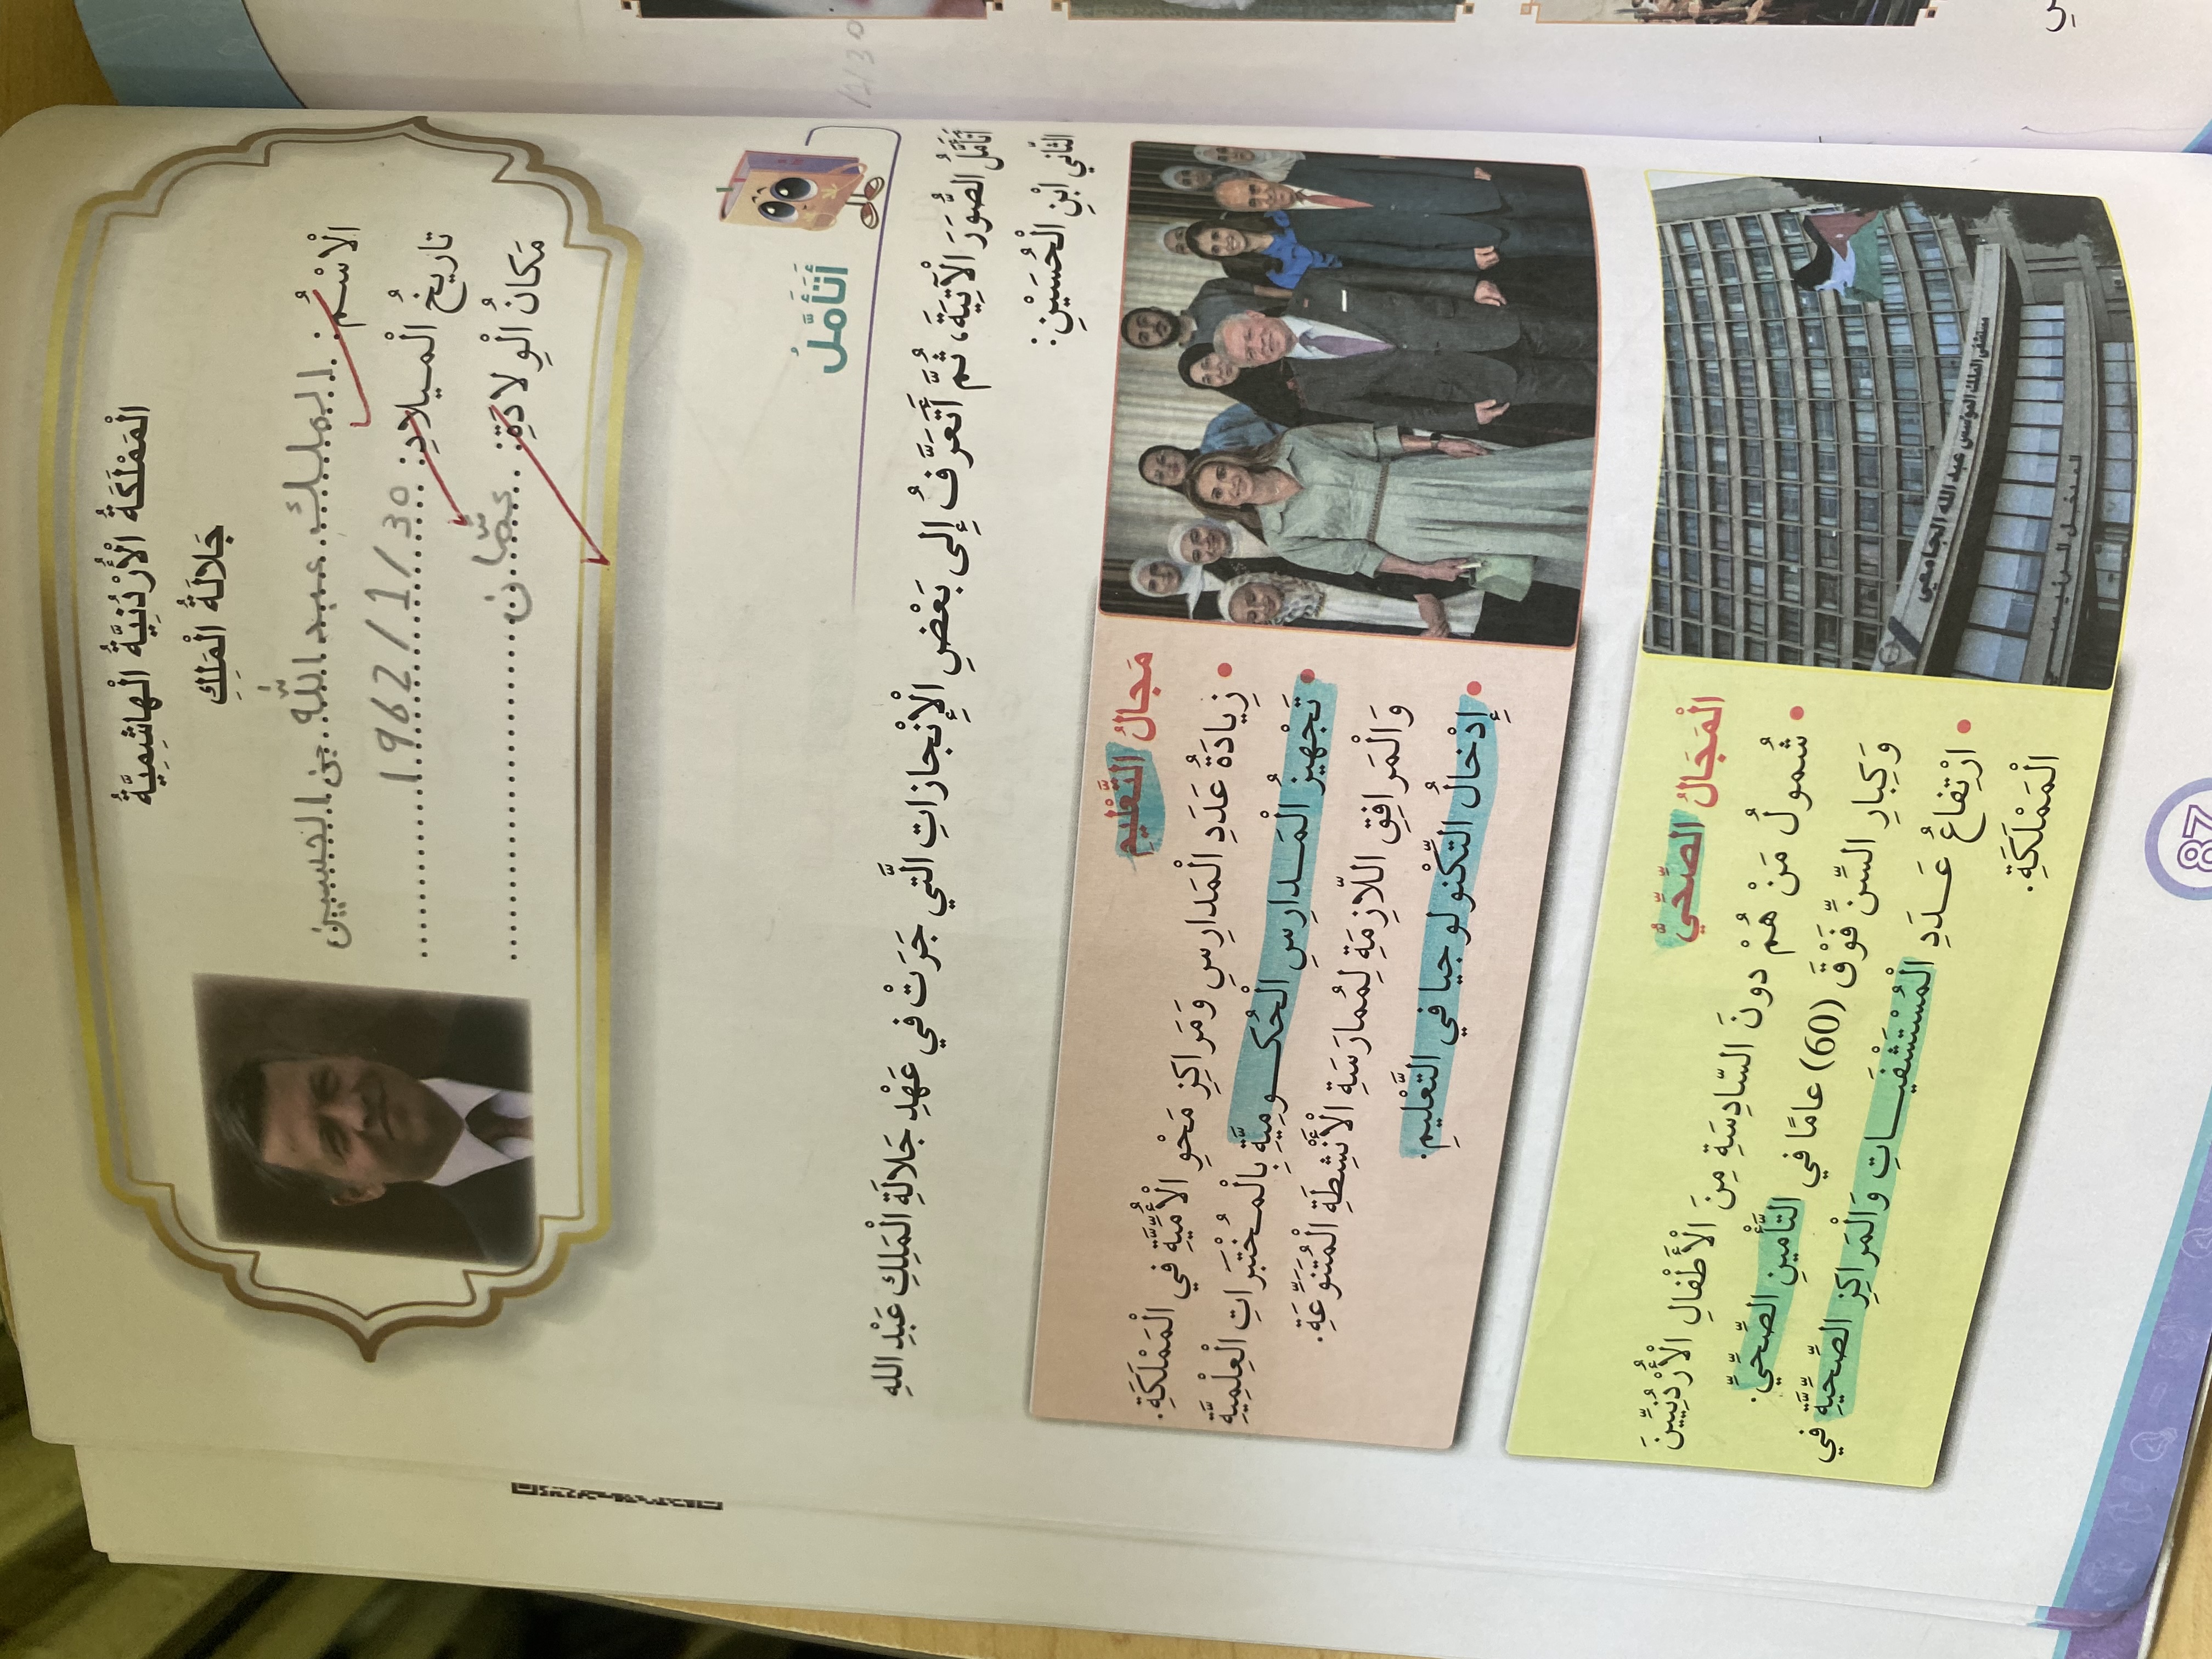 الْمَمْلَكَةُ الْأُرْدُنِيَّةُ الْهاشِمِيَّةُ
جَلالَةُ الْمَلِكِ
الْاسْمُ: الملك عبد الله بن الحسين
تاريخُ الْميلادِ: 1962/1/30
مَكانُ الْوِلادَةِ: عمّان
أَتَأَمَّلُ
أَتَأَمَّلُ الصُّوَرَ الْآتِيَةَ، ثُمَّ أَتَعَرَّفُ إِلى بَعْضِ الْإِنْجازاتِ الَّتي جَرَتْ في عَهْدِ جَلالَةِ الْمَلِكِ عَبْدِ اللهِ
الثّاني ابْنِ الْحُسَيْنِ:
مَجالُ التَّعْليمِ
• زِيادَةُ عَدَدِ الْمَدارِسِ وَمَراكِزِ مَحْوِ الْأُمِّيَّةِ في الْمَمْلَكَةِ.
• تَجْهيزُ الْمَدارِسِ الْحُكوميَّةِ بِالْمُخْتَبَراتِ الْعِلْمِيَّةِ
وَالْمَرافِقِ اللّازِمَةِ لِمُمارَسَةِ الْأَنْشِطَةِ الْمُتَنَوِّعَةِ.
• إِدْخالُ التِّكْنولوجيا في التَّعْليمِ.
الْمَجالُ الصِّحِّيُّ
• شُمولُ مَنْ هُمْ دونَ السّادِسَةِ مِنَ الْأَطْفالِ الْأُرْدُنِيّينَ
وَكِبارِ السِّنِّ فَوْقَ (60) عامًا في التَّأْمينِ الصِّحِّيِّ.
• ارْتِفاعُ عَدَدِ الْمُسْتَشْفَياتِ وَالْمَراكِزِ الصِّحِّيَّةِ في
الْمَمْلَكَةِ.
مستشفى الملك المؤسس عبد الله الجامعي
المدخل الرئيسي
87